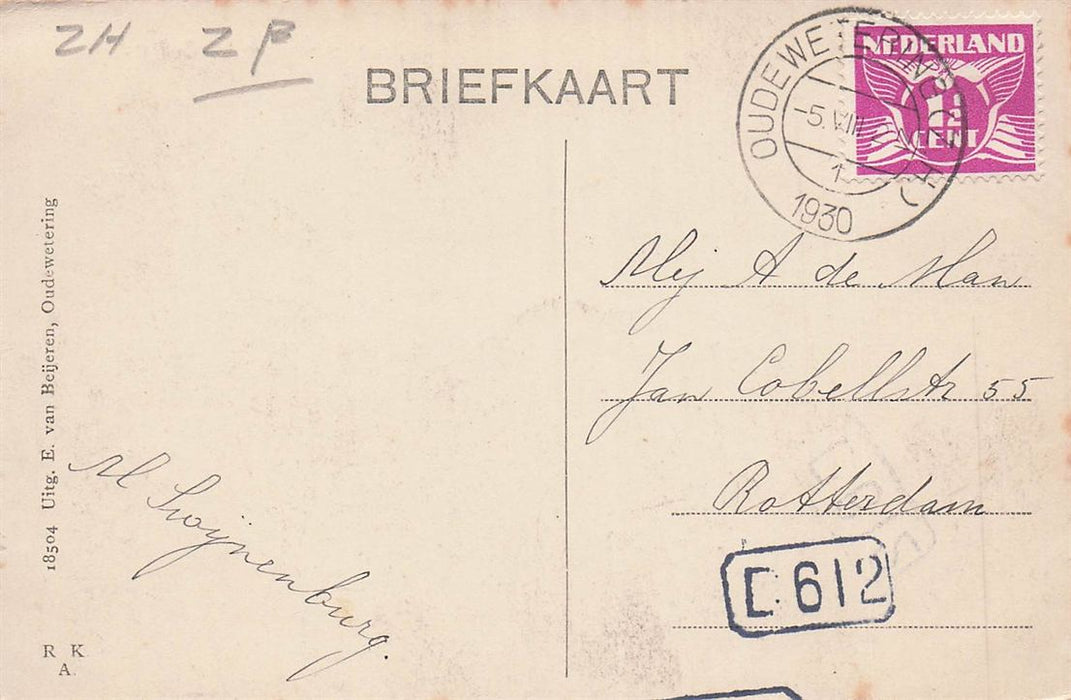 ZH ZP
BRIEFKAART
NEDERLAND
1½
CENT
OUDEWETERING (Z.H.)
-5.VIII
1
1930
Mej A de Man
Jan Cobellstr 55
Rotterdam
18504 Uitg. E. van Beijeren, Oudewetering
R K
A.
C.612